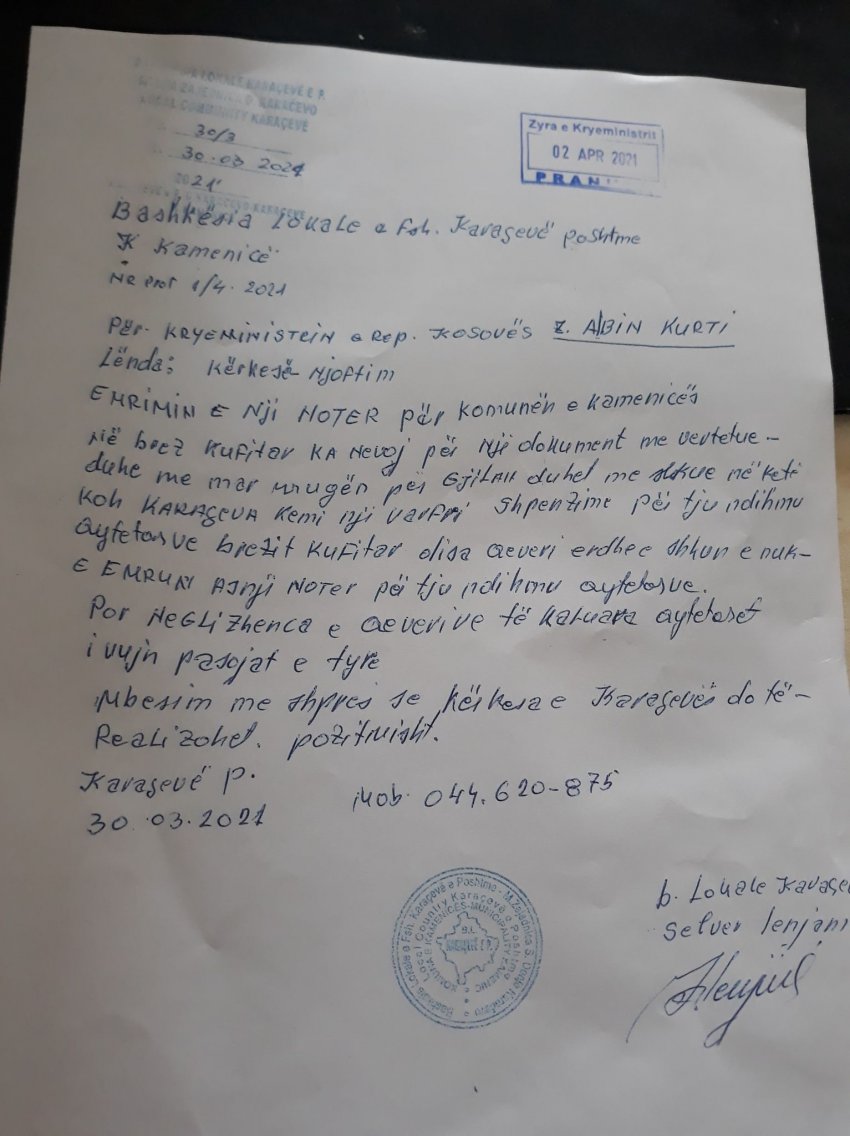 LOKALE KARAÇEVË E P.
ZAJEDNICA D. KARAČEVO
LOCAL COMUNITY KARAÇEVË
30/3
30.03 2021
2021
Zyra e Kryeministrit
02 APR 2021
PRAN
Bashkësia Lokale e Fsh. Karaçevë poshtme
K Kamenicë
NR prot 1/4. 2021
Për. KRYEMINISTEIN e Rep. KOSOVËS Z. ALBIN KURTI
Lënda: Kërkesë Njoftim
EMRIMIN E NJi NOTER për Komunën e Kamenicës
Në brez Kufitar KA Nevoj për Një dokument me vertetue -
duhe me mar rrugën për GJiLAN duhet me shkue në ketë
Koh KARAÇEVA Kemi nji varfri shpenzime për tju ndihmu
qytetarve brezit Kufitar disa qeveri erdhen shkun e nuk-
E EMRUN ASNJi NOTER për tju ndihmu qytetarve.
Por NEGLiZhENCA e qeverive të Kaluara qytetaret
i vujn pasojat e tyre
Mbesim me shpres se kërkesa e Karaçevës do të-
Realizohet. pozitivisht.
Karaçevë P.
30.03.2021
Mob. 044.620-875
b. Lokale Karaçe
Selver lenjani
Bashkësia Lokale e Fsh. Karaçevë e Poshtme - M.Zajednica S. Donje Karačevo
Local Country Karaçevë e Poshtme
KOMUNA E KAMENICËS-MUNICIPALITY KAMENIC
B.L.
KARAÇEVË E P.